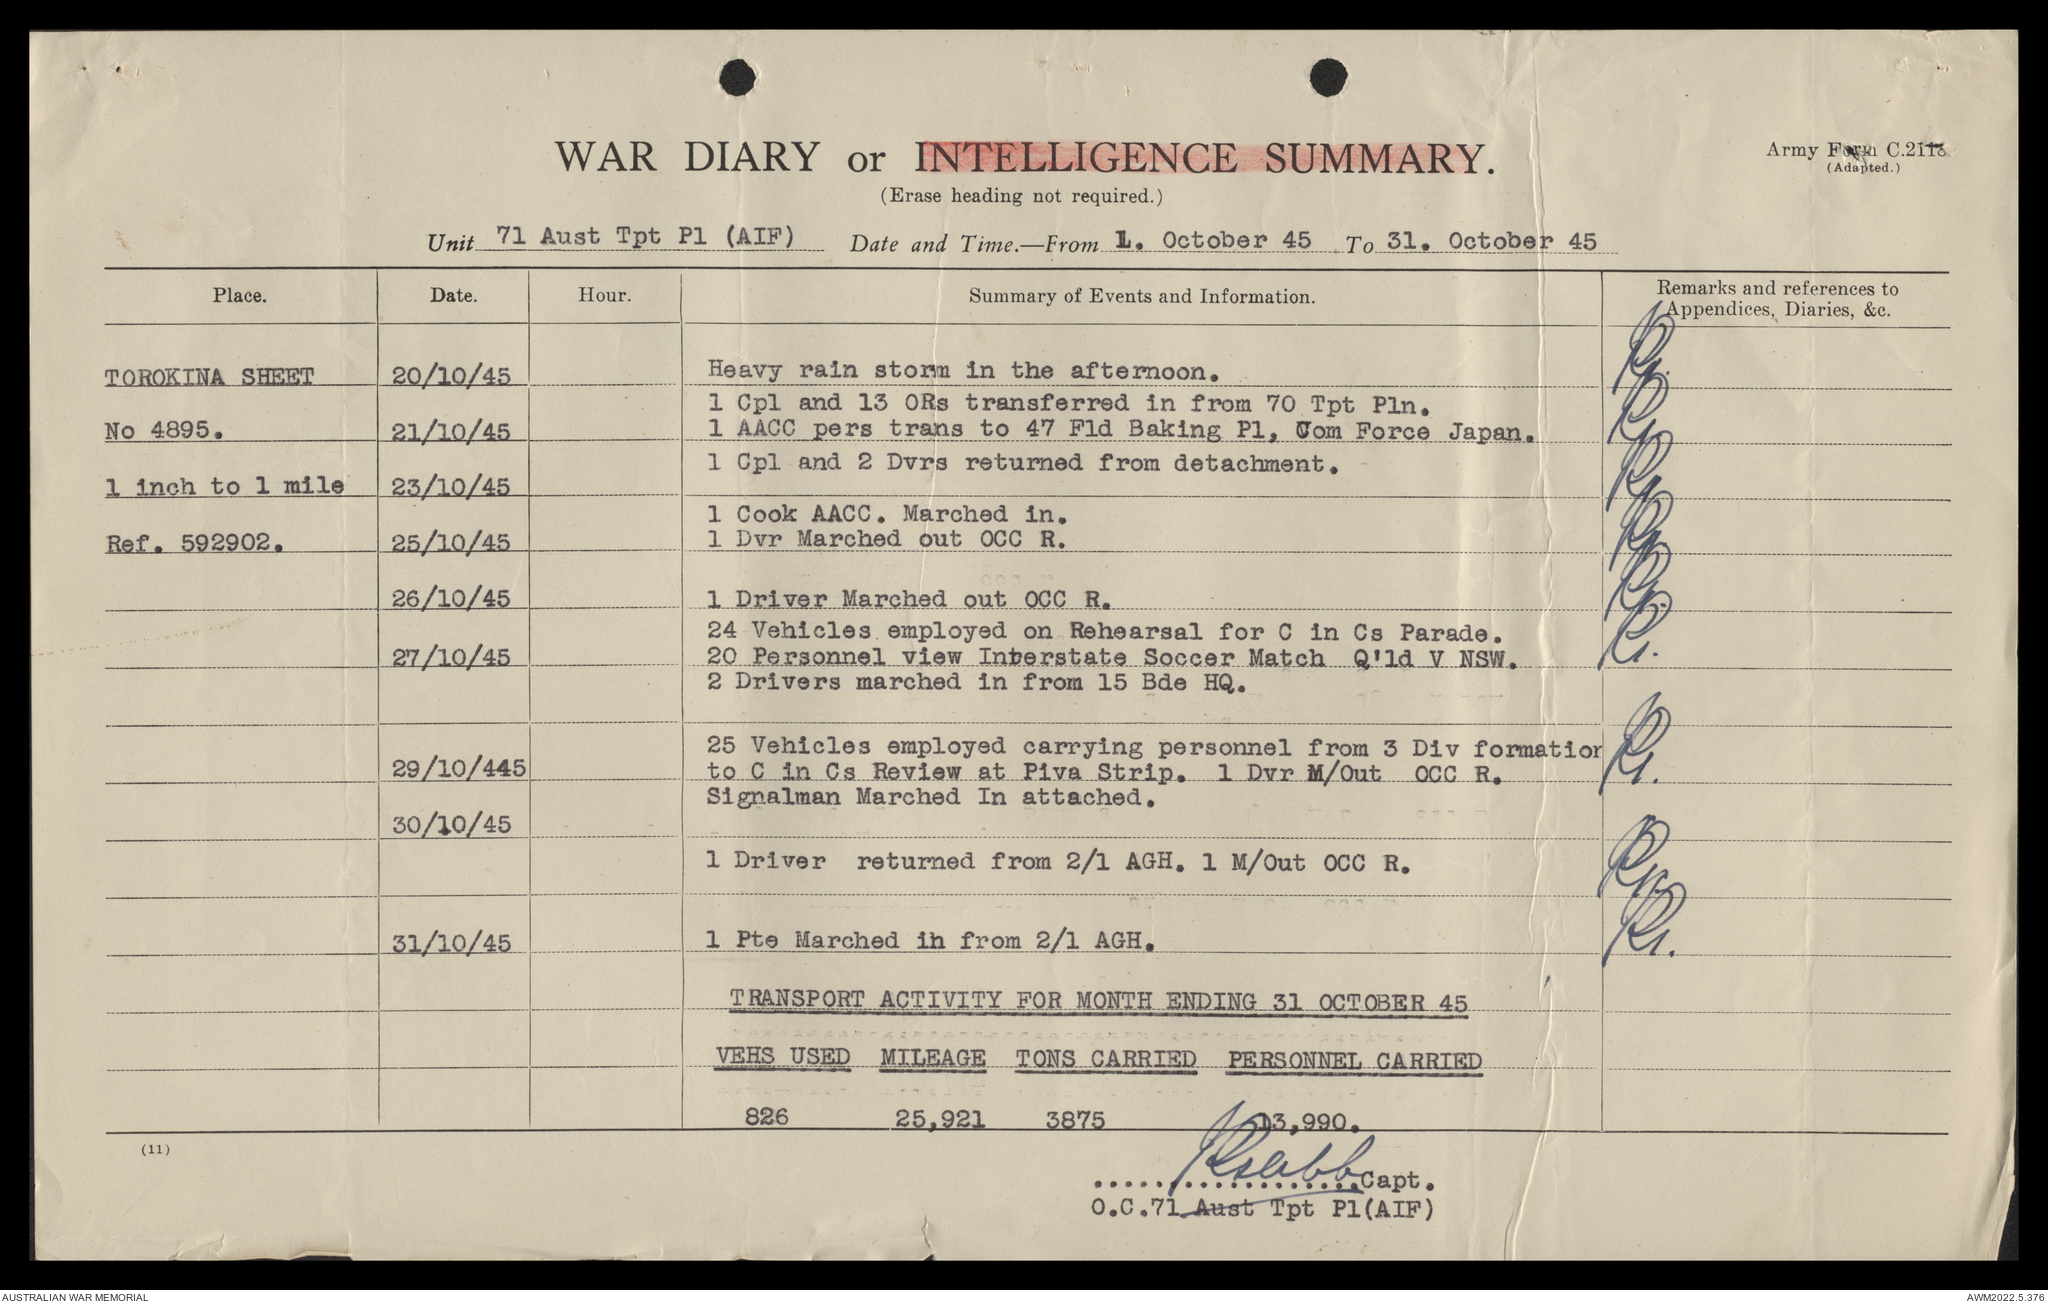 WAR DIARY or INTELLIGENCE SUMMARY.
(Erase heading not required.)
Army Form C.2118
(Adapted.)
Unit 71 Aust Tpt Pl (AIF) Date and Time.—From 1. October 45 To 31. October 45
Place. Date. Hour. Summary of Events and Information. Remarks and references to
Appendices, Diaries, &c.
TOROKINA SHEET 20/10/45 Heavy rain storm in the afternoon.
1 Cpl and 13 ORs transferred in from 70 Tpt Pln.
No 4895. 21/10/45 1 AACC pers trans to 47 Fld Baking Pl, Com Force Japan.
1 Cpl and 2 Dvrs returned from detachment.
1 inch to 1 mile 23/10/45
1 Cook AACC. Marched in.
Ref. 592902. 25/10/45 1 Dvr Marched out OCC R.
26/10/45 1 Driver Marched out OCC R.
24 Vehicles employed on Rehearsal for C in Cs Parade.
27/10/45 20 Personnel view Interstate Soccer Match Q'ld V NSW.
2 Drivers marched in from 15 Bde HQ.
25 Vehicles employed carrying personnel from 3 Div formation
29/10/445 to C in Cs Review at Piva Strip. 1 Dvr M/Out OCC R.
Signalman Marched In attached.
30/10/45
1 Driver returned from 2/1 AGH. 1 M/Out OCC R.
31/10/45 1 Pte Marched in from 2/1 AGH.
TRANSPORT ACTIVITY FOR MONTH ENDING 31 OCTOBER 45
VEHS USED MILEAGE TONS CARRIED PERSONNEL CARRIED
826 25,921 3875 13,990.
(11)
....................Capt.
O.C.71 Aust Tpt Pl(AIF)
AUSTRALIAN WAR MEMORIAL
AWM2022.5.376